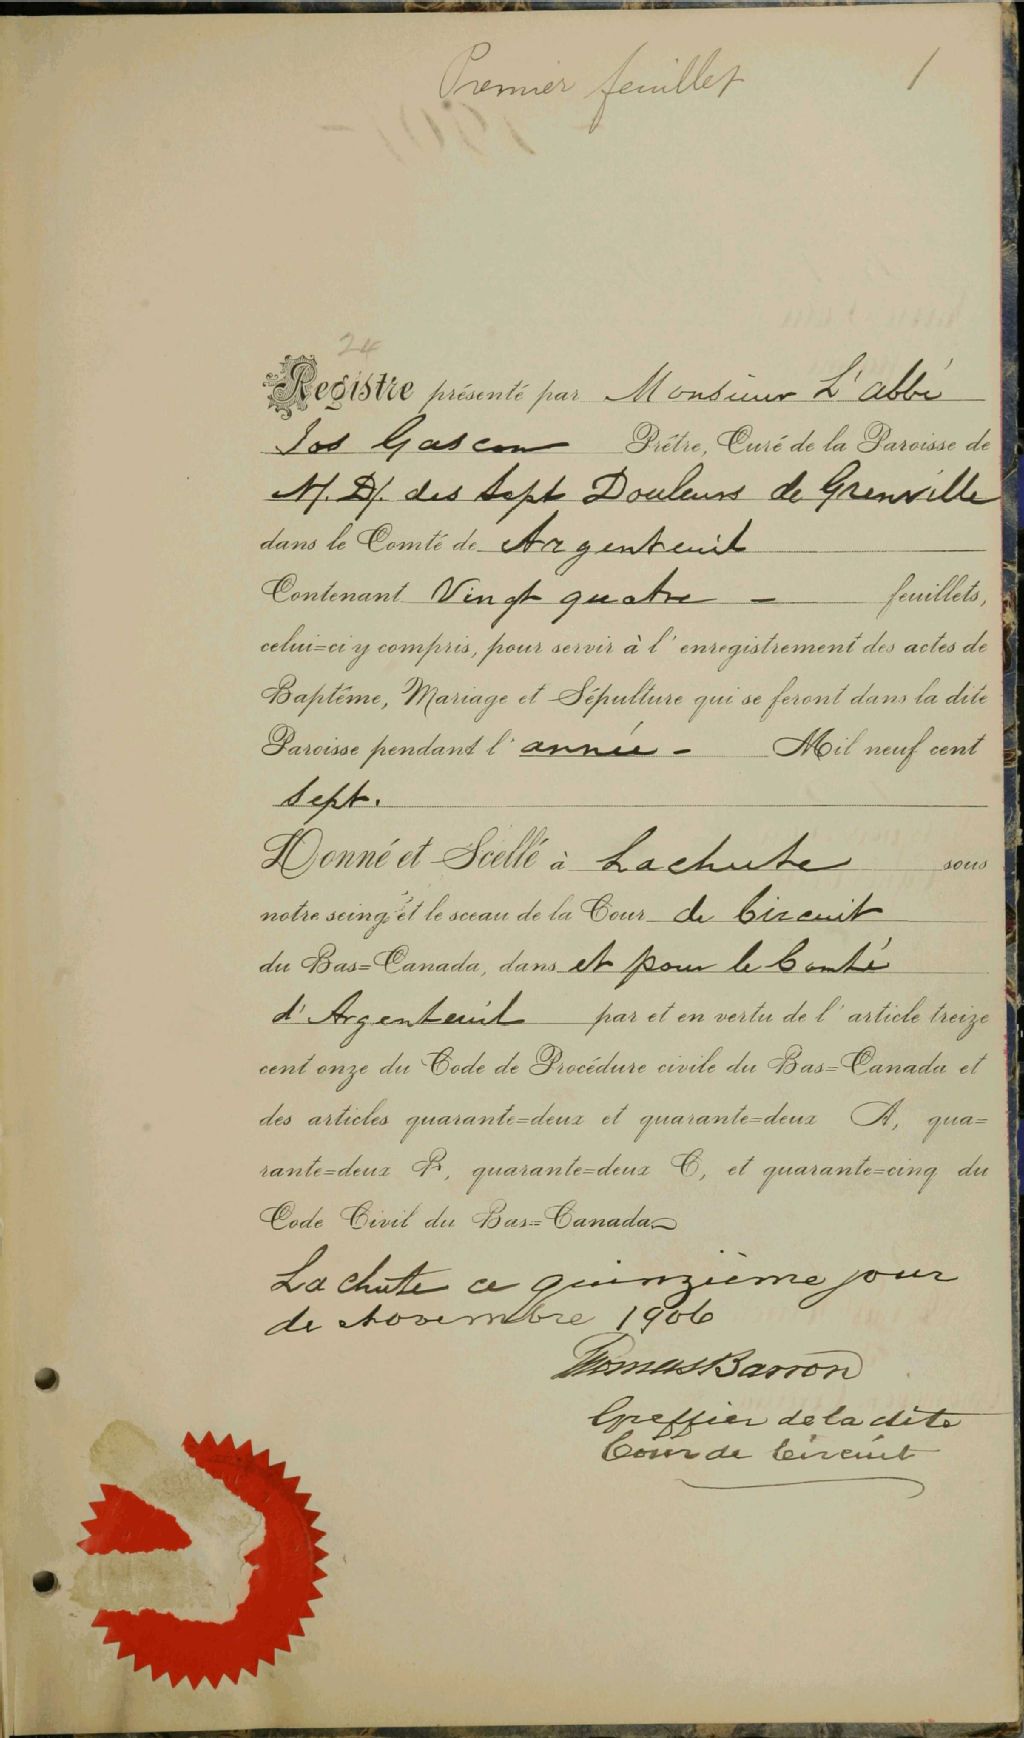 Premier feuillet 1
24
Registre présenté par Monsieur L'abbé
Jos Gascon Prêtre, Curé de la Paroisse de
N. D. des Sept Douleurs de Grenville
dans le Comté de Argenteuil
Contenant Vingt quatre — feuillets,
celui=ci y compris, pour servir à l'enregistrement des actes de
Baptême, Mariage et Sépulture qui se feront dans la dite
Paroisse pendant l'année - Mil neuf cent
Sept.
Donné et Scellé à Lachute sous
notre seing et le sceau de la Cour de Circuit
du Bas=Canada, dans et pour le Comté
d'Argenteuil par et en vertu de l'article treize
cent onze du Code de Procédure civile du Bas=Canada et
des articles quarante=deux et quarante=deux A, qua=
rante=deux B, quarante=deux C, et quarante=cinq du
Code Civil du Bas=Canada
Lachute ce quinzième jour
de Novembre 1906
Thomas Barron
Greffier de la dite
Cour de Circuit